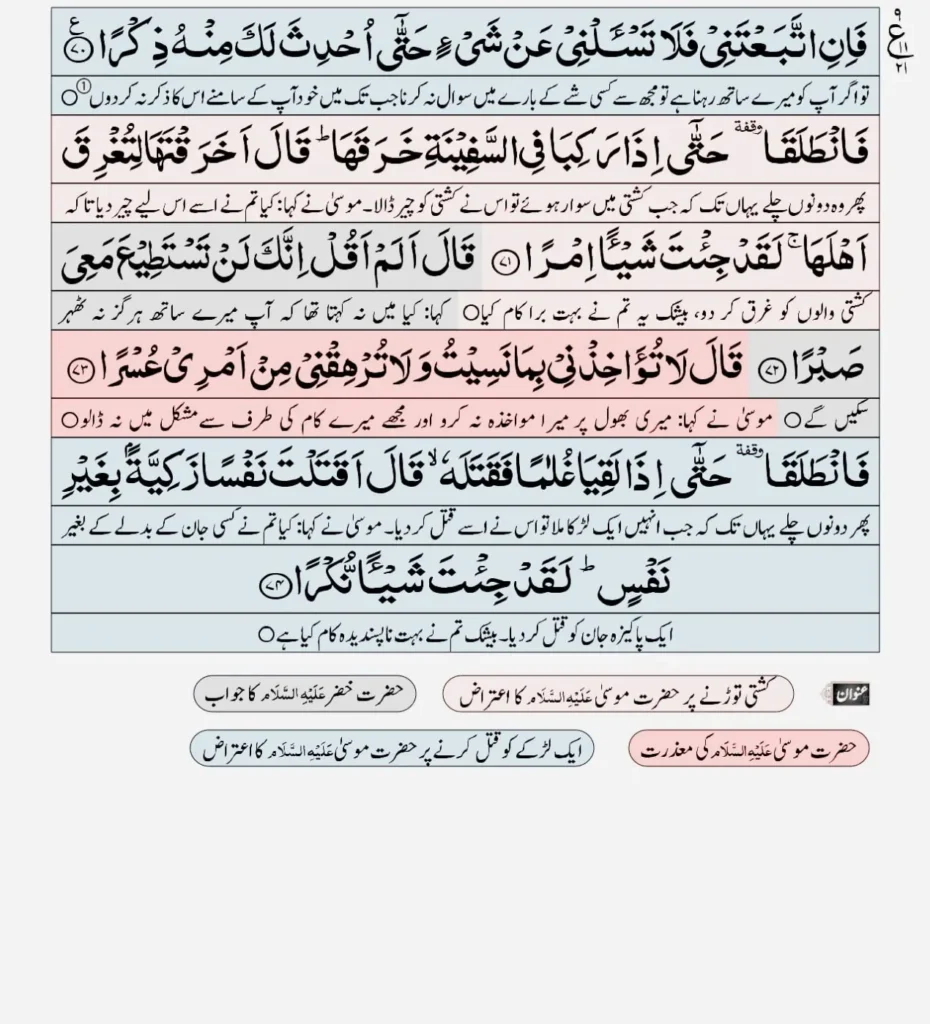 فَاِنِ اتَّبَعْتَنِیْ فَلَا تَسْـَٔلْنِیْ عَنْ شَیْءٍ حَتّٰۤی اُحْدِثَ لَكَ مِنْهُ ذِكْرًا ﴿۷۰﴾ ع
۹ ع ۱۱ ۲۱
تو اگر آپ کو میرے ساتھ رہنا ہے تو مجھ سے کسی شے کے بارے میں سوال نہ کرنا جب تک میں خود آپ کے سامنے اس کا ذکر نہ کردوں ①○
فَانْطَلَقَا ٙ وقفة حَتّٰۤی اِذَا رَكِبَا فِی السَّفِیْنَةِ خَرَقَهَا ؕ قَالَ اَخَرَقْتَهَا لِتُغْرِقَ
پھر وہ دونوں چلے یہاں تک کہ جب کشتی میں سوار ہوئے تو اس نے کشتی کو چیر ڈالا۔ موسیٰ نے کہا: کیا تم نے اسے اس لیے چیر دیا تاکہ
اَهْلَهَا ۚ لَقَدْ جِئْتَ شَیْـًٔا اِمْرًا ﴿۷۱﴾ قَالَ اَلَمْ اَقُلْ اِنَّكَ لَنْ تَسْتَطِیْعَ مَعِیَ
کشتی والوں کو غرق کر دو، بیشک یہ تم نے بہت برا کام کیا○ کہا: کیا میں نہ کہتا تھا کہ آپ میرے ساتھ ہرگز نہ ٹھہر
صَبْرًا ﴿۷۲﴾ قَالَ لَا تُؤَاخِذْنِیْ بِمَا نَسِیْتُ وَ لَا تُرْهِقْنِیْ مِنْ اَمْرِیْ عُسْرًا ﴿۷۳﴾
سکیں گے○ موسیٰ نے کہا: میری بھول پر میرا مواخذہ نہ کرو اور مجھے میرے کام کی طرف سے مشکل میں نہ ڈالو○
فَانْطَلَقَا ٙ وقفة حَتّٰۤی اِذَا لَقِیَا غُلٰمًا فَقَتَلَهٗ ۙ قَالَ اَقَتَلْتَ نَفْسًا زَكِیَّةًۢ بِغَیْرِ
پھر دونوں چلے یہاں تک کہ جب انہیں ایک لڑکا ملا تو اس نے اسے قتل کر دیا۔ موسیٰ نے کہا: کیا تم نے کسی جان کے بدلے کے بغیر
نَفْسٍ ؕ لَقَدْ جِئْتَ شَیْـًٔا نُّكْرًا ﴿۷۴﴾
ایک پاکیزہ جان کو قتل کر دیا۔ بیشک تم نے بہت ناپسندیدہ کام کیا ہے○
عنوان کشتی توڑنے پر حضرت موسیٰ عَلَیْهِ السَّلَام کا اعتراض حضرت خضر عَلَیْهِ السَّلَام کا جواب
حضرت موسیٰ عَلَیْهِ السَّلَام کی معذرت ایک لڑکے کو قتل کرنے پر حضرت موسیٰ عَلَیْهِ السَّلَام کا اعتراض